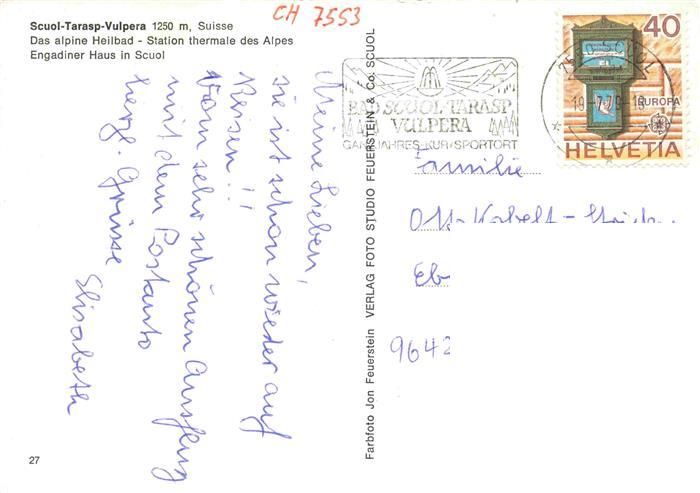 Scuol-Tarasp-Vulpera 1250 m, Suisse
Das alpine Heilbad - Station thermale des Alpes
Engadiner Haus in Scuol
CH 7553
Meine Lieben,
sie ist schon wieder auf
Reisen!!
Vom sehr schönen Ausflug
mit dem Postauto
herzl. Grüsse
Elisabeth
27
Farbfoto Jon Feuerstein VERLAG FOTO STUDIO FEUERSTEIN & Co. SCUOL
BAD SCUOL-TARASP-
VULPERA
GANZJAHRES-KUR+SPORTORT
SCUOL
19.-7.79
40
EUROPA
HELVETIA
Familie
Eb
9642